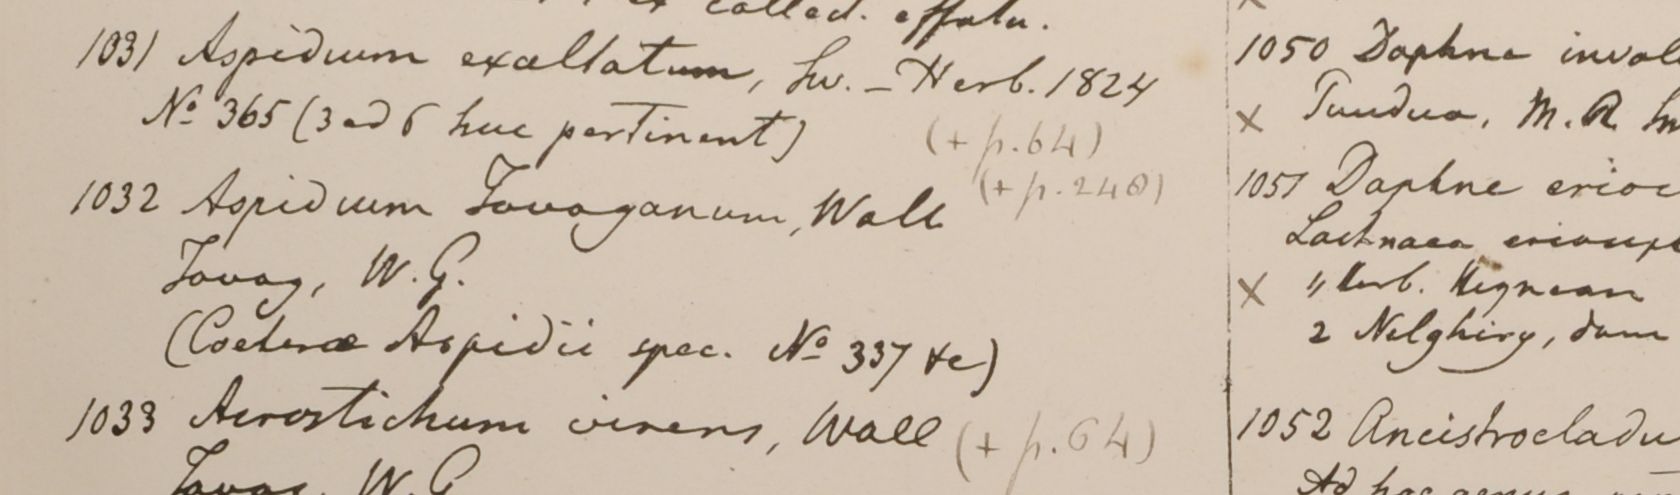 collect. effata.
1031 Aspidium exaltatum, Sw. – Herb. 1824
Nº 365 (3 ad 6 huc pertinent)
(+ p. 64)
1032 Aspidium Tavoyanum, Wall
(+ p. 240)
Tavoy, W. G.
(Coeterae Aspidii spec. Nº 337 &c)
1033 Acrostichum virens, Wall (+ p. 64)
Tavoy, W. G
1050 Daphne invol
x Tundua, M. R.
1051 Daphne erioc
Lachnaea eriocep
x " Herb. Heynean
2 Nelghiry, dom
1052 Ancistrocladu
Ad hoc genus